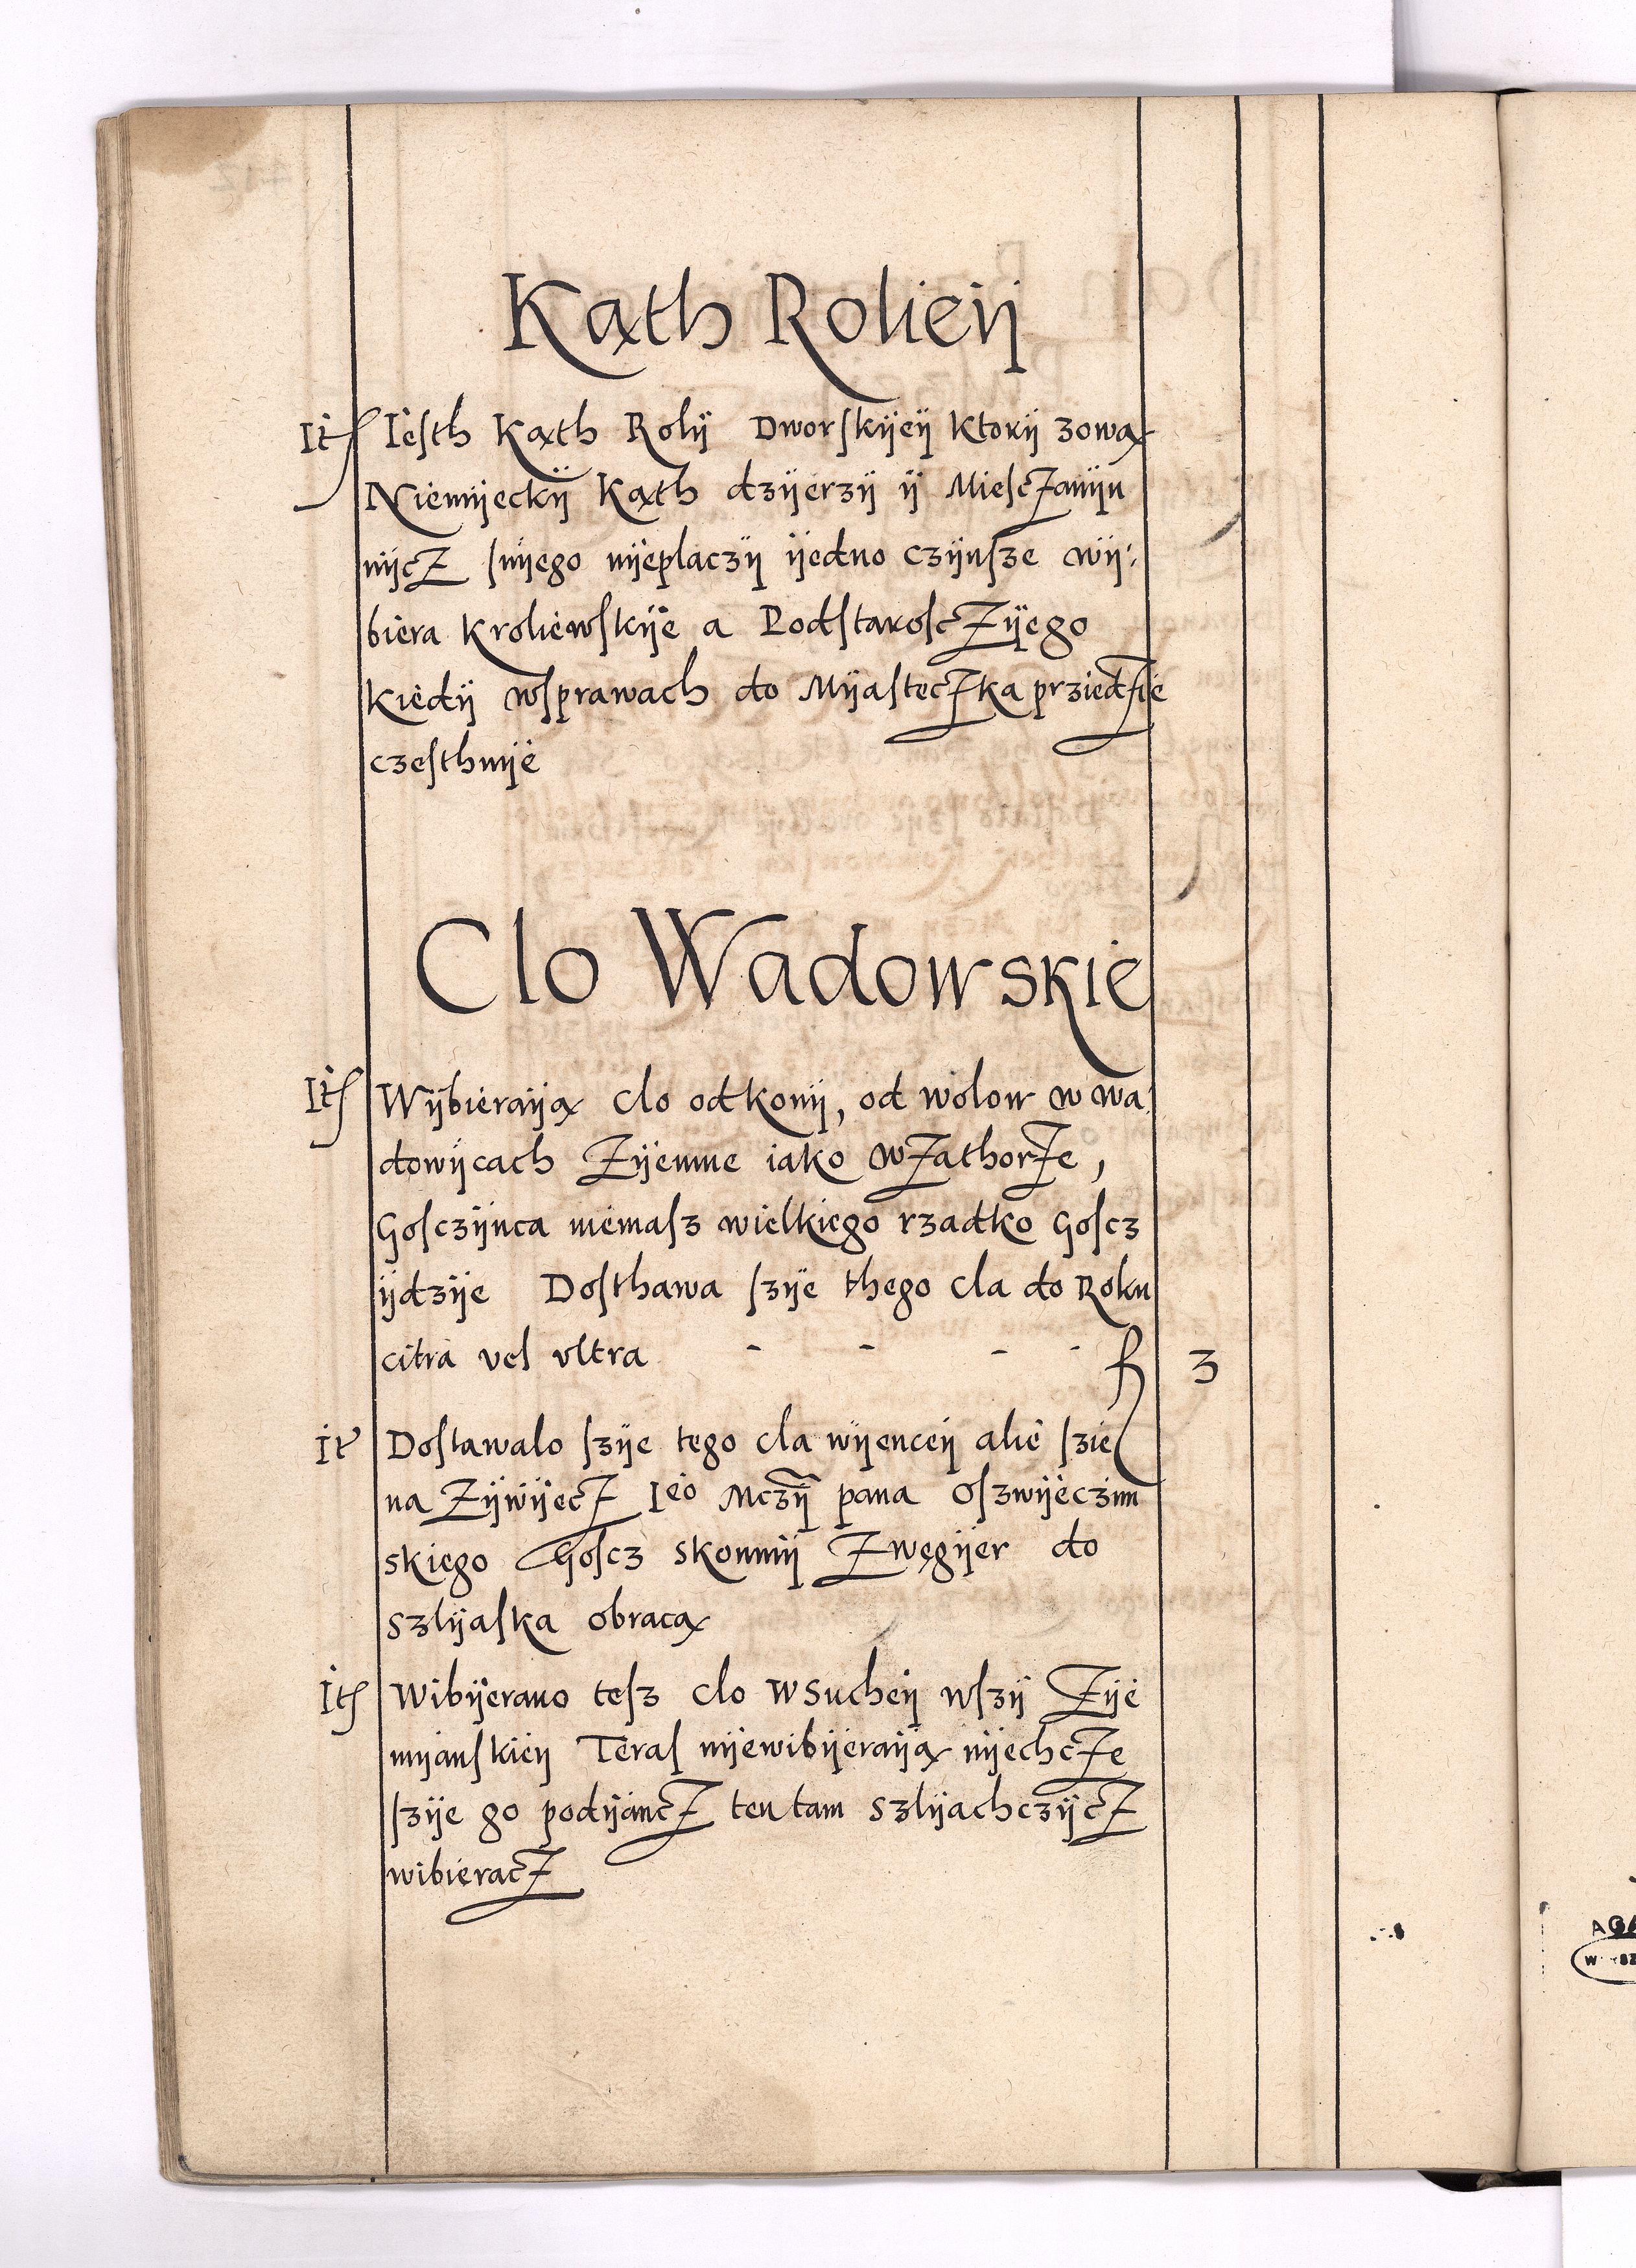 Kąth Roliey
It Iesth Kąth Roly Dworskyey Ktory zową
Niemyecky Kąth dzyerzy y Miesczanyn
nycz snyego nyeplaczy yedno czynsze wy:
biera Kroliewskye a Podstarosczyego
Kiedy wsprawach do Myasteczka prziedzie
czesthuye
Clo Wadowskie
It Wybierayą Clo odkony, od wolow w wa:
dowycach Zyemne iako wZathorze,
Gosczynca niemasz wielkiego rzadko Goscz
ydzye Dosthawa szye thego Cla do Roku
citra vel vltra - - - - fl 3
It Dostawalo szye tego cla wyencey alie szie
na Zywyecz Ieo Mczy pana Oszwyeczim
skiego Goscz skonmy Zwęgyer do
Szlyaska obracą
It Wibyerano tesz clo wSuchey wszy Zye
myanskiey Teras nyewibyerayą nyechcze
szye go podyancz ten tam Szlyachczycz
wibieracz